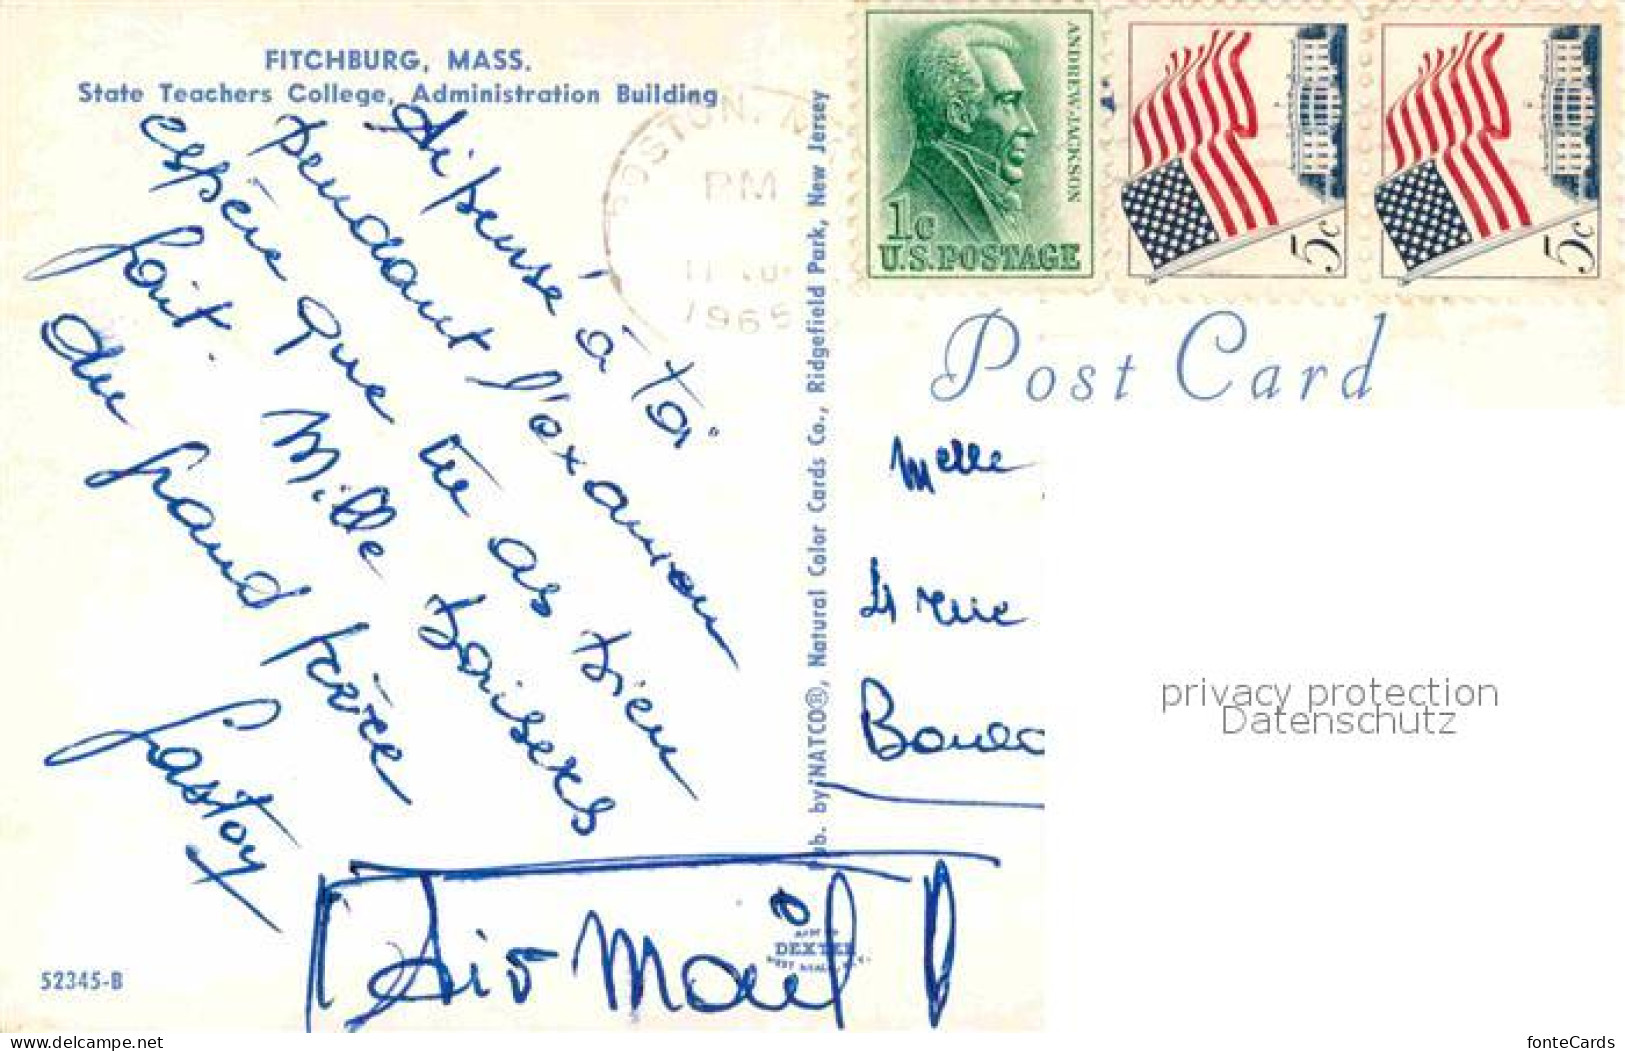 FITCHBURG, MASS.
State Teachers College, Administration Building
Ai pensé à toi
pendant l'examen
espère que tu as bien
fait. Mille baisers
du grand frère
Gastoy
Air Mail
52345-B
BOSTON, M
PM
1965
Pub. by NATCO®, Natural Color Cards Co., Ridgefield Park, New Jersey
DEXTER
1c
U.S. POSTAGE
ANDREW JACKSON
5c
5c
Post Card
Melle
4 rue
privacy protection
Datenschutz
www.delcampe.net
fonteCards